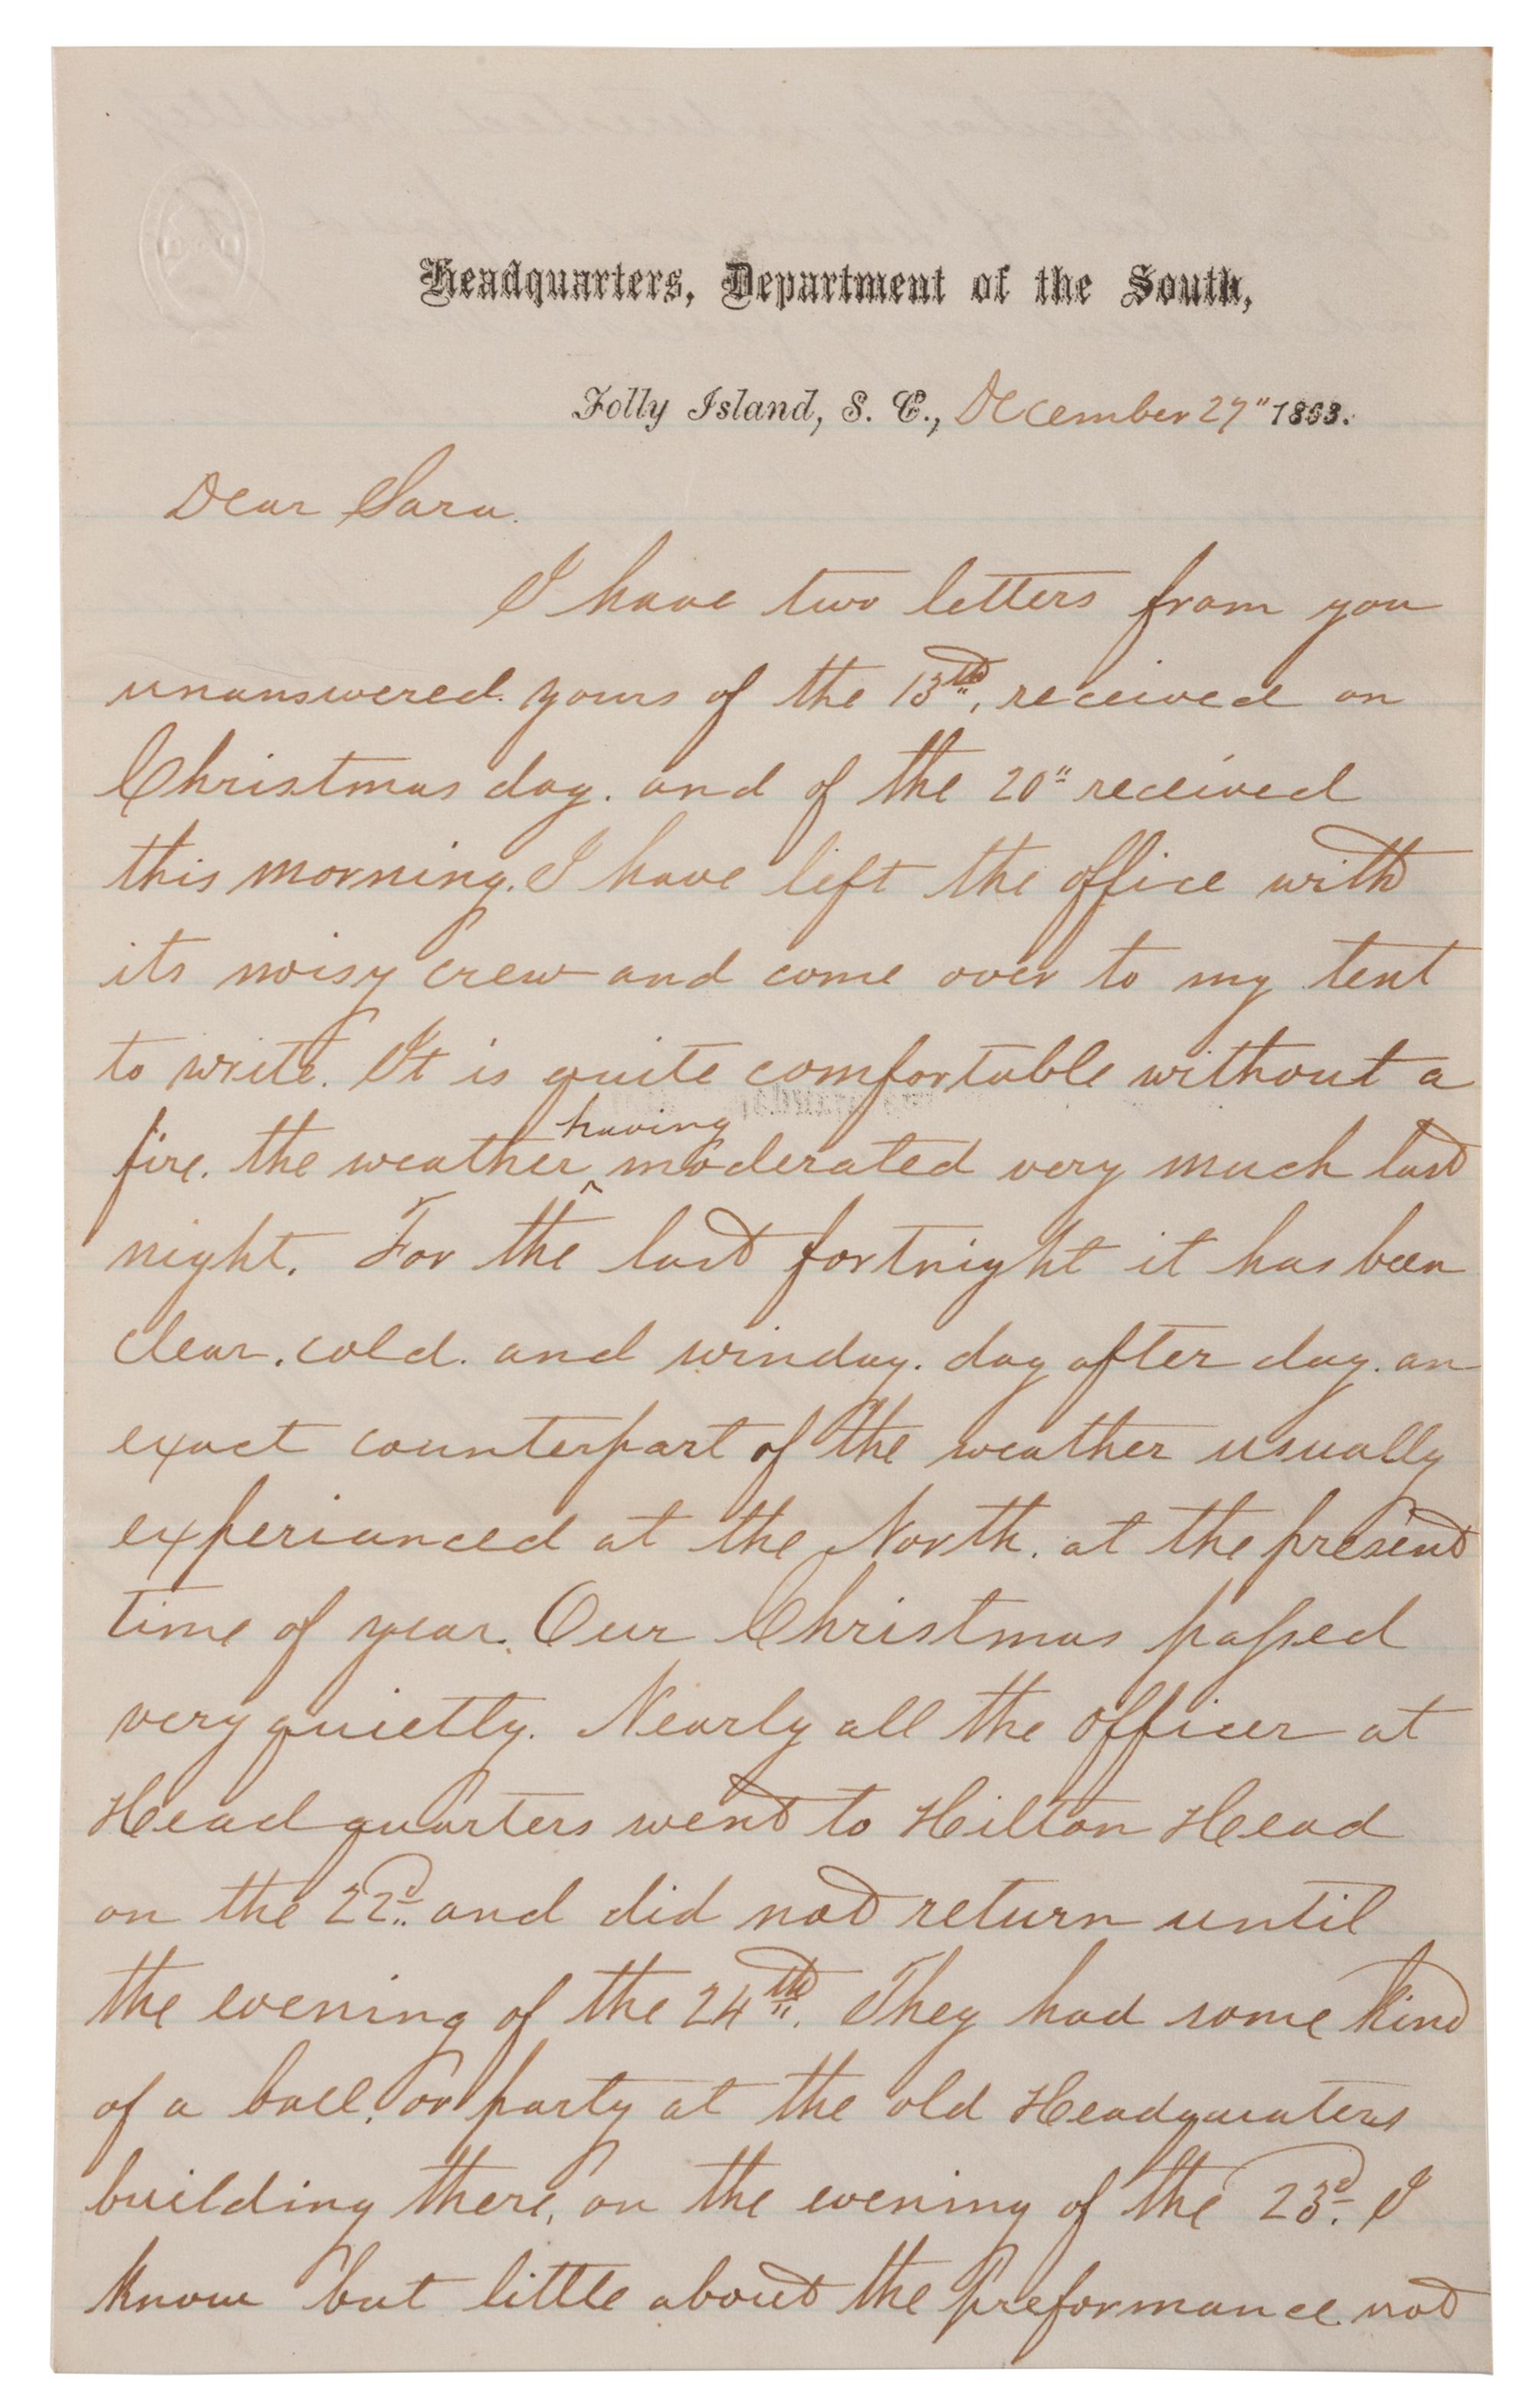 Headquarters, Department of the South,
Folly Island, S. C., December 27" 1863.
Dear Sara.
I have two letters from you
unanswered. yours of the 13th, received on
Christmas day. and of the 20" received
this morning. I have left the office with
its noisy crew and come over to my tent
to write. It is quite comfortable without a
having
fire. the weather ^ moderated very much last
night. For the last fortnight it has been
clear. cold. and winday. day after day. an
exact counterpart of the weather usually
experianced at the North. at the present
time of year. Our Christmas passed
very quietly. Nearly all the officer at
Headquarters went to Hilton Head
on the 22d. and did not return until
the evening of the 24th. They had some kind
of a ball. or party at the old Headquaters
building there, on the evening of the 23d. I
know but little about the preformance. not